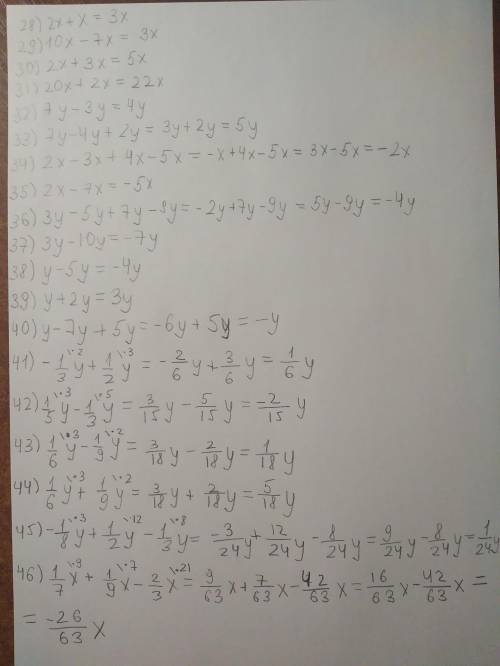 28) 2x + x = 3x
29) 10x - 7x = 3x
30) 2x + 3x = 5x
31) 20x + 2x = 22x
32) 7y - 3y = 4y
33) 7y - 4y + 2y = 3y + 2y = 5y
34) 2x - 3x + 4x - 5x = -x + 4x - 5x = 3x - 5x = -2x
35) 2x - 7x = -5x
36) 3y - 5y + 7y - 9y = -2y + 7y - 9y = 5y - 9y = -4y
37) 3y - 10y = -7y
38) y - 5y = -4y
39) y + 2y = 3y
40) y - 7y + 5y = -6y + 5y = -y
41) - 1/3 \·2 y + 1/2 \·3 y = - 2/6 y + 3/6 y = 1/6 y
42) 1/5 \·3 y - 1/3 \·5 y = 3/15 y - 5/15 y = -2/15 y
43) 1/6 \·3 y - 1/9 \·2 y = 3/18 y - 2/18 y = 1/18 y
44) 1/6 \·3 y + 1/9 \·2 y = 3/18 y + 2/18 y = 5/18 y
45) - 1/8 \·3 y + 1/2 \·12 y - 1/3 \·8 y = -3/24 y + 12/24 y - 8/24 y = 9/24 y - 8/24 y = 1/24 y
46) 1/7 \·9 x + 1/9 \·7 x - 2/3 \·21 x = 9/63 x + 7/63 x - 42/63 x = 16/63 x - 42/63 x =
= -26/63 x